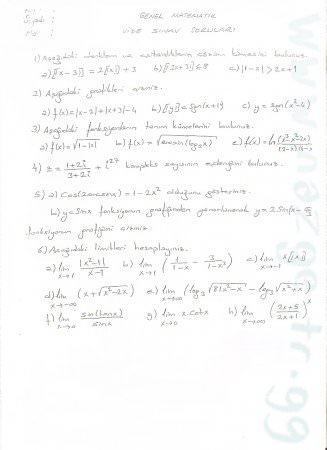 Adı :
Grubu :
No :
GENEL MATEMATİK
VİZE SINAV SORULARI
1) Aşağıdaki denklem ve eşitsizliklerin çözüm kümesini bulunuz.
a) [|x-3|] = 2[|x|]+3 b) [|2x+3|] ≤ 8 c) |1-x| > 2x+1
2) Aşağıdaki grafikleri çiziniz.
a) f(x)=|x-2|+|x+3|-4 b) [|y|]=sgn(x+1) c) y=sgn(x²-4)
3) Aşağıdaki fonksiyonların tanım kümelerini bulunuz.
a) f(x)=√(1-|x|) b) f(x)=√(arcsin(log₂x)) c) f(x)=ln
4) z = (1+2i)/(3+2i) + i²⁷ kompleks sayının eşleniğini bulunuz.
5) a) Cos(2arcsinx) = 1-2x² olduğunu gösteriniz.
b) y=Sinx fonksiyonun grafiğinden yararlanarak y=2Sin(x-
fonksiyonun grafiğini çiziniz.
6) Aşağıdaki limitleri hesaplayınız.
a) lim x→1 |x²-1|/(x-1) b) lim x→1 (1/(1-x) - 3/(1-x³)) c) lim x→-1 x[|x|]
d) lim x→-∞ (x+√(x²-2x)) e) lim x→∞ (log₃√(81x²-x) - log₃√(x²+x))
f) lim x→0 sin(tanx)/sinx g) lim x→0 x.cotx h) lim x→∞ ((2x+5)/(2x+1))^x